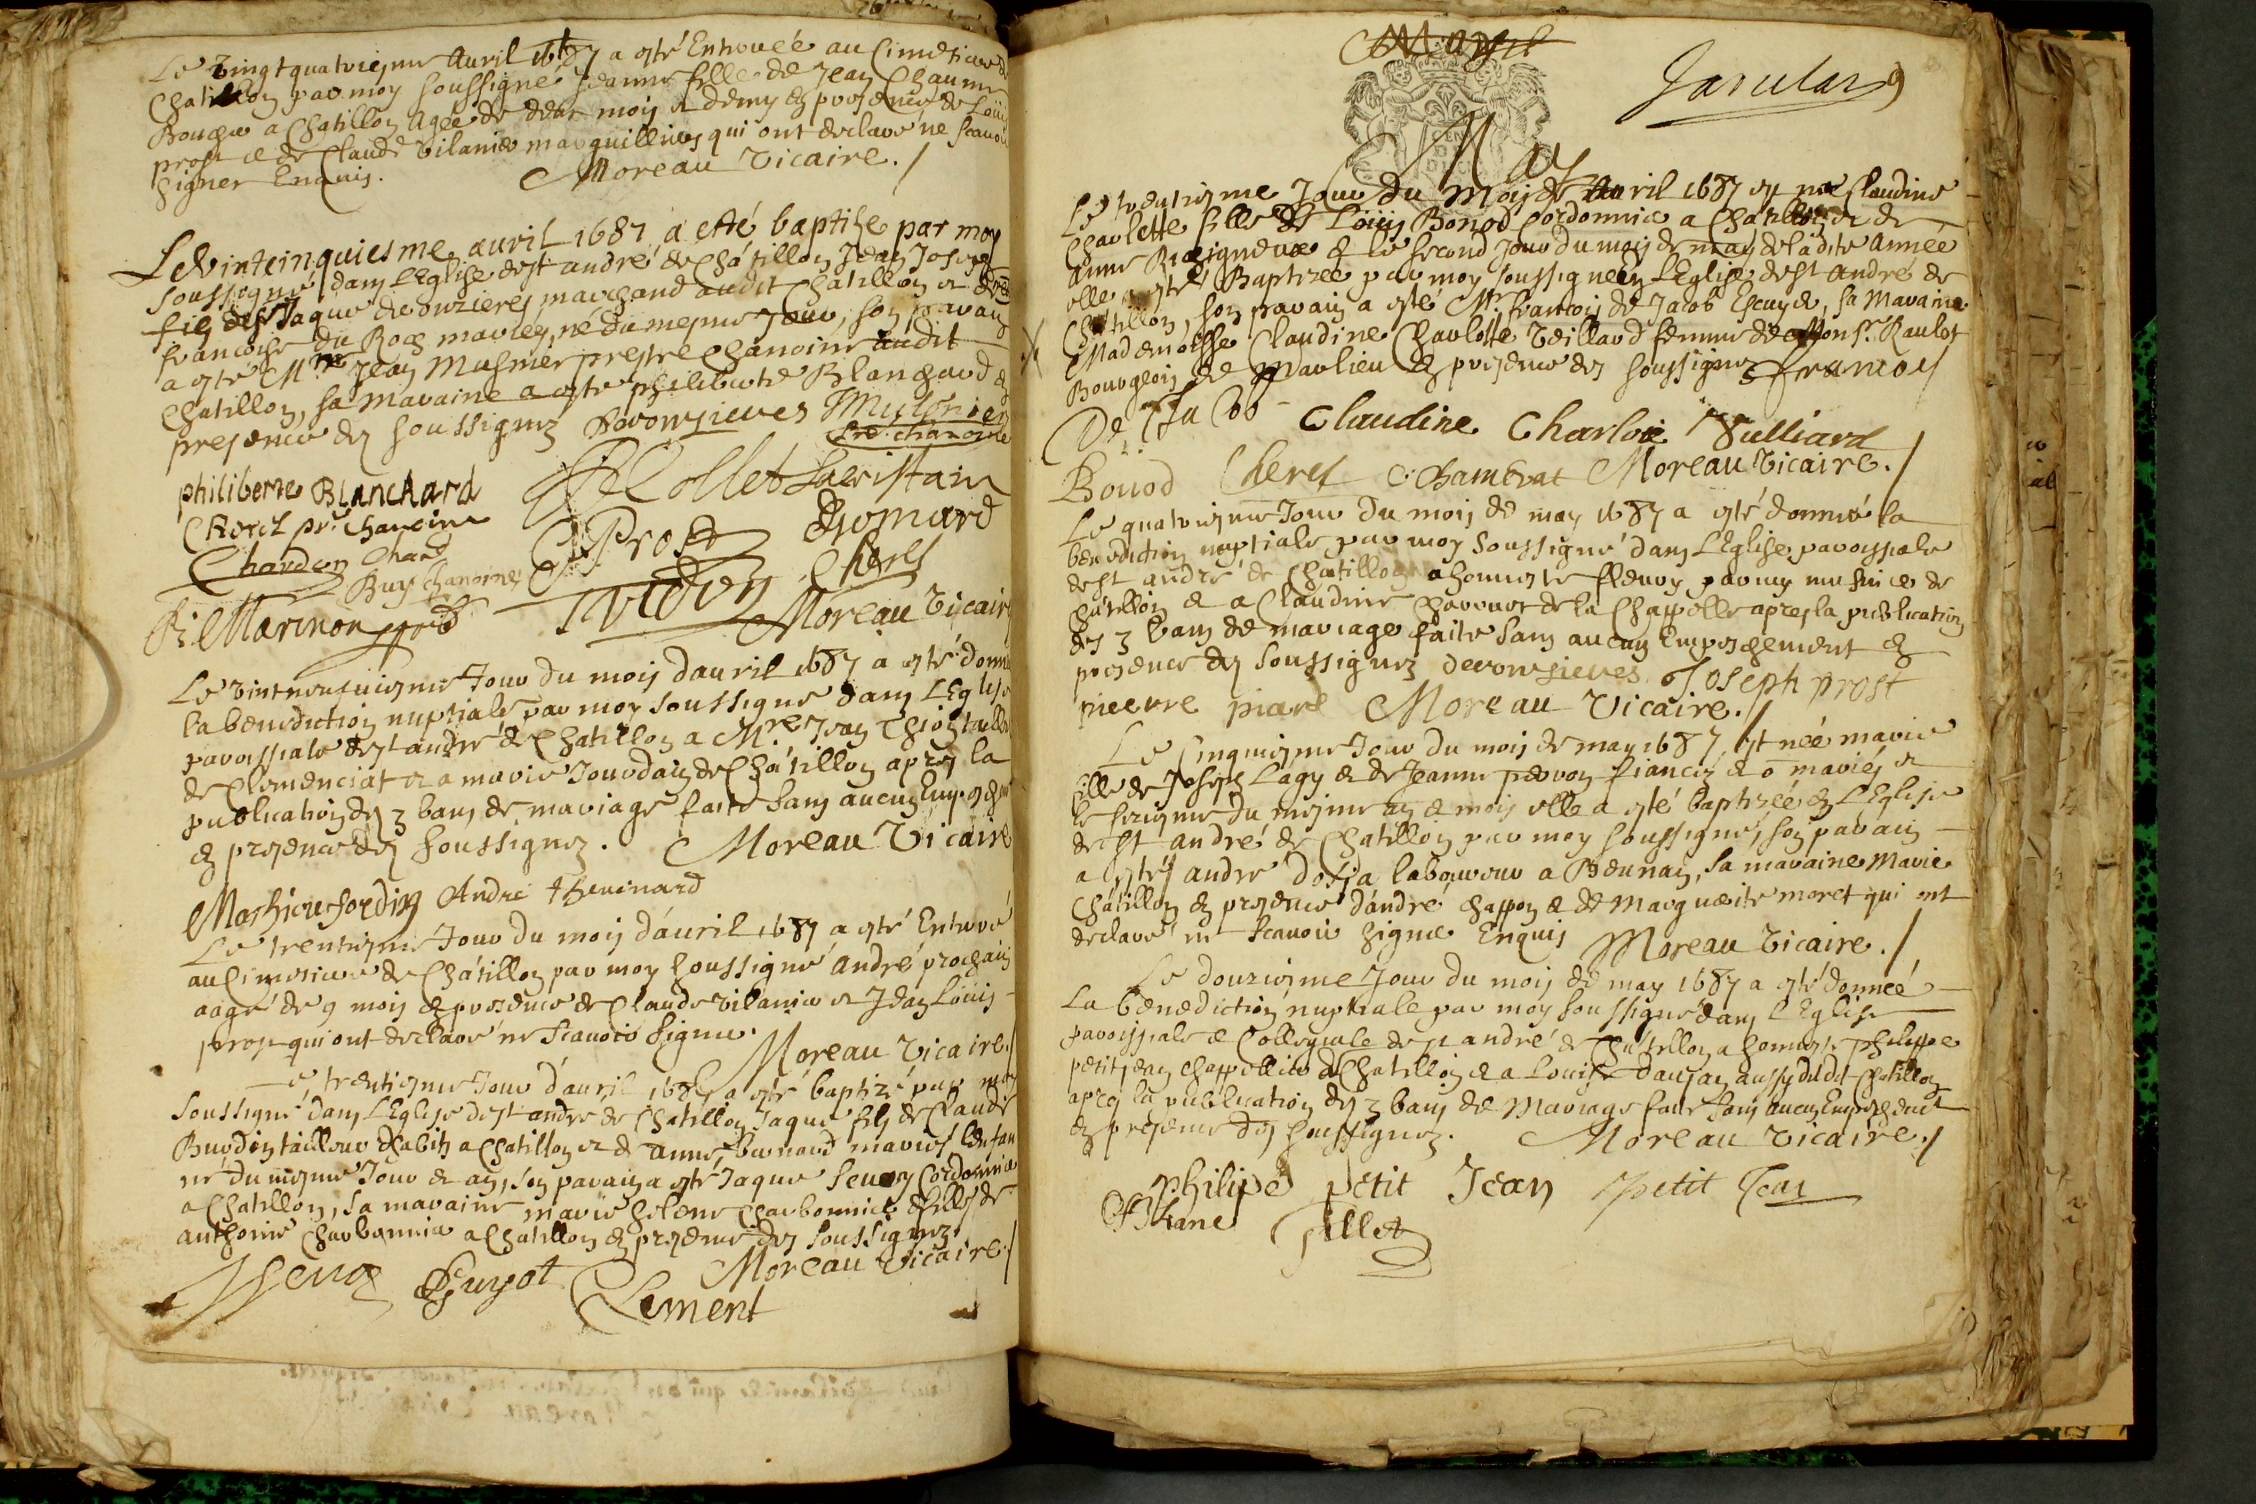 Le vingtquatriesme Auril 1687 a esté Enterreé au Cimetiere de
Chatillon par moy soussigné Jeanne fille de Jean Chaume
a Chatillon Ageé de deux mois et demy en presence de Loüis
prost et de Claude vilanie marguilliers qui ont declaré ne scauoir
signer Enquis. Moreau Vicaire./
Le Vinteinquiesme auril 1687 a esté baptisé par moy
soussigné dans L'Eglise de st andré de Châtillon Jean Joseph
fils de sr Jaque deronzieres marchand audit Chatillon et de
francoise du Roch mariés, né du mesme Jour, son parain
a esté Mre Jean Musnier prestre Chanoine audit
Chatillon, sa maraine a esté philiberte Blanchard en
presence des soussignez Deronzieres JMusnier
pre. chanoine
philiberte BLanchard Collet Sacristain
Cherel pre. Chanoine CProst Thomard
Chardon Chan
Buy chanoine Cherel
Marinon Moreau Vicaire
Le vintneufuiesme Jour du mois dauril 1687 a esté donné
la benediction nuptiale par moy soussigné dans L'Eglise
paroissiale de st andré de Chatillon a Mre Jean
de Clemenciat et a marie Jourdain de Châtillon apres la
publication des 3 bans de mariage faite sans aucun
en presence des soussignez. Moreau Vicaire
Andre theuenard
Le trentiesme Jour du mois d'auril 1687 a esté Enterré
au Cimetiere de Châtillon par moy soussigné André prochain
aagé de 9 mois en presence de Claude vilanie et Jean Loüis
prost qui ont declaré ne scauoir signer.
Moreau Vicaire./
Le trentiesme Jour d'auril 1687 a esté baptizé par moy
soussigné dans L'Eglise de st andré de Chatillon Jaque fils de Claude
Burdin tailleur d'habits a Chatillon et de anne bernard mariés L'enfant
né du mesme Jour et an, son parain a esté Jaque Cordonnier
a Chatillon, sa maraine marie helene Charbonnier fille de
anthoine Charbonnier a Chatillon en presence des soussignez
Moreau Vicaire./
Guyot Lement
May
Le trentiesme Jour du Mois de Auril 1687 est née Claudine
Charlotte fille de Loüis Bonod Cordonnier a Chatillon et de
anne et le second Jour du mois de may de ladite année
elle a esté Baptizeé par moy soussigné en L'Eglise de st André de
Chatillon, son parain a esté Mr francois de Jacob Escuyer, sa Maraine
Mademoiselle Claudine Charlotte Veillard femme de Monsr. Raulot
Bourgeois de en presence des soussignez francoys
De Claudine Charlote Vulliard
Bonod Cherel Chambrat Moreau Vicaire./
Le quatriesme Jour du mois de may 1687 a esté donné la
benediction nuptiale par moy soussigné dans L'Eglise paroissiale
de st andré de Chatillon a honneste fleury parny musnier de
Châtillon et a Claudine de la Chappelle apres la publication
des 3 bans de mariage faite sans aucun Empeschement en
presence des soussignez deronzieres Joseph prost
pieerre piare Moreau Vicaire./
Le Cinquiesme Jour du mois de may 1687 est née marie
fille de Joseph Lagy et de Jeanne perron fiancés et o mariés et
le sixiesme du mesme an et mois elle a esté baptizeé en L'Eglise
de st andré de Chatillon par moy soussigné, son parain
a esté andré laboureur a Beunan, sa maraine Marie
Châtillon en presence d'andré chappon et de Marguerite moret qui ont
declaré ne scauoir signer Enquis Moreau Vicaire./
Le douziesme Jour du mois de may 1687 a esté donneé
La benediction nuptiale par moy soussigné dans L'Eglise
paroissiale et Collegiale de st andré de Châtillon a honneste philippe
petitjean chappellier de Chatillon et a Louise Daujan aussy dudit Chatillon
apres la publication des 3 bans de Mariage faite sans aucun Empeschement
en presence des soussignez. Moreau Vicaire./
Philipe petit Jean petit Jean
tillet